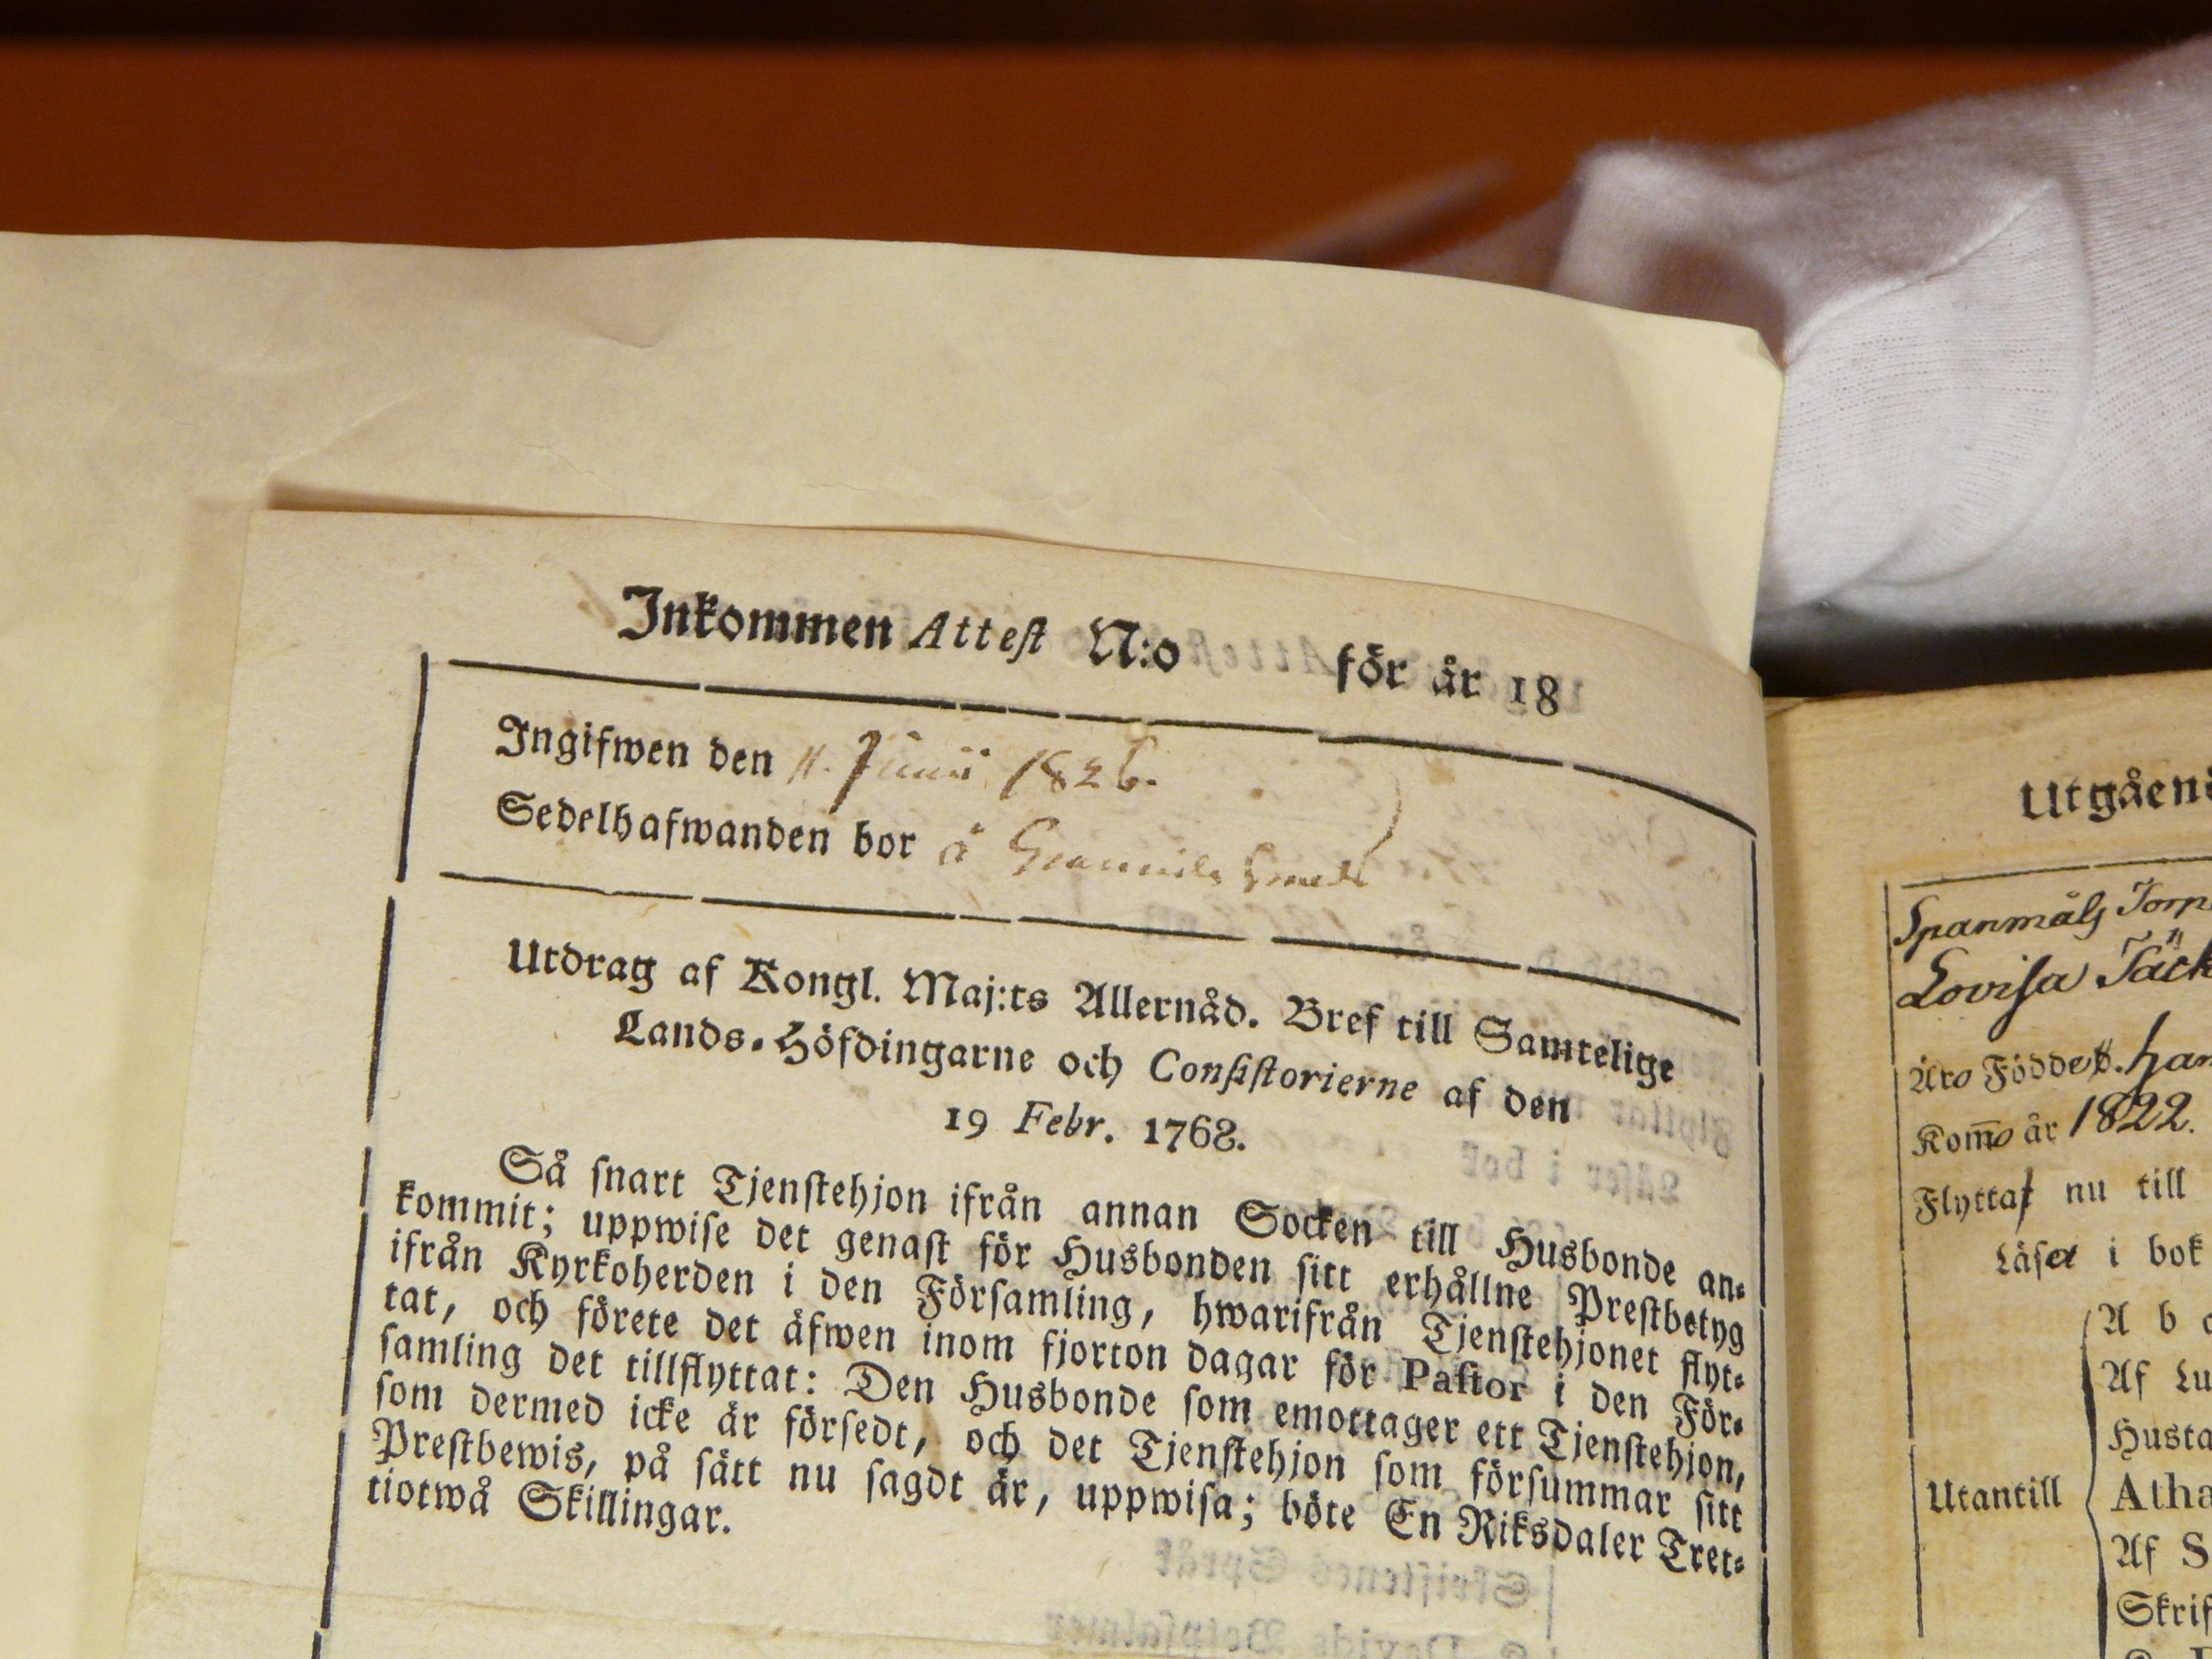 Inkommen Attest N:o för år 18
Ingifwen den 11. Junii 1826.
Sedelhafwanden bor å
Utdrag af Kongl. Maj:ts Allernåd. Bref till Samtelige
Lands-Höfdingarne och Consistorierne af den
19 Febr. 1768.
Så snart Tjenstehjon ifrån annan Socken till Husbonde an-
kommit; uppwise det genast för Husbonden sitt erhållne Prestbetyg
ifrån Kyrkoherden i den Församling, hwarifrån Tjenstehjonet flyt-
tat, och förete det äfwen inom fjorton dagar för Pastor i den För-
samling det tillflyttat: Den Husbonde som emottager ett Tjenstehjon,
som dermed icke är försedt, och det Tjenstehjon som försummar sitt
Prestbewis, på sätt nu sagdt är, uppwisa; böte En Riksdaler Tret-
tiotwå Skillingar.
Utgåend
Spanmåls Torp
Lovisa Täck
Äro Födde
Komo år 1822.
Flyttat nu till
Läsa i bok
A b
Af Lu
Husta
Utantill
Atha
Af S
Skrif